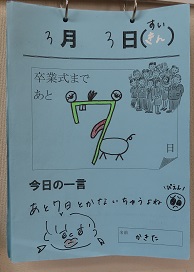 3月3日(きん)
すい
卒業式まで
あと
7
日
今日の一言
あと7日とかないちゃうよね
名前
かきた